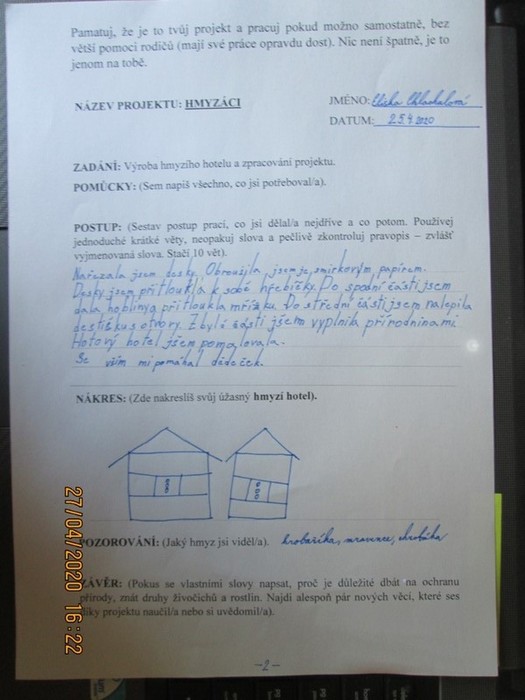 Pamatuj, že je to tvůj projekt a pracuj pokud možno samostatně, bez
větší pomoci rodičů (mají své práce opravdu dost). Nic není špatně, je to
jenom na tobě.
NÁZEV PROJEKTU: HMYZÁCI
JMÉNO: Eliška Chlachalová
DATUM: 25.4.2020
ZADÁNÍ: Výroba hmyzího hotelu a zpracování projektu.
POMŮCKY: (Sem napiš všechno, co jsi potřeboval/a).
POSTUP: (Sestav postup prací, co jsi dělal/a nejdříve a co potom. Používej
jednoduché krátké věty, neopakuj slova a pečlivě zkontroluj pravopis – zvlášť
vyjmenovaná slova. Stačí 10 vět).
Nařezala jsem desky. Obrousila jsem je smirkovým papírem.
Desky jsem přitloukla k sobě hřebíčky. Do spodní části jsem
dala hobliny a přitloukla mřížku. Do střední části jsem nalepila
destičku s otvory. Zbylé části jsem vyplnila přírodninami.
Hotový hotel jsem pomalovala.
Se vším mi pomáhal dědeček.
NÁKRES: (Zde nakreslíš svůj úžasný hmyzí hotel).
POZOROVÁNÍ: (Jaký hmyz jsi viděl/a). hrobaříka, mravence, chrobáka
ZÁVĚR: (Pokus se vlastními slovy napsat, proč je důležité dbát na ochranu
přírody, znát druhy živočichů a rostlin. Najdi alespoň pár nových věcí, které ses
díky projektu naučil/a nebo si uvědomil/a).
-2-
27/04/2020 16:22